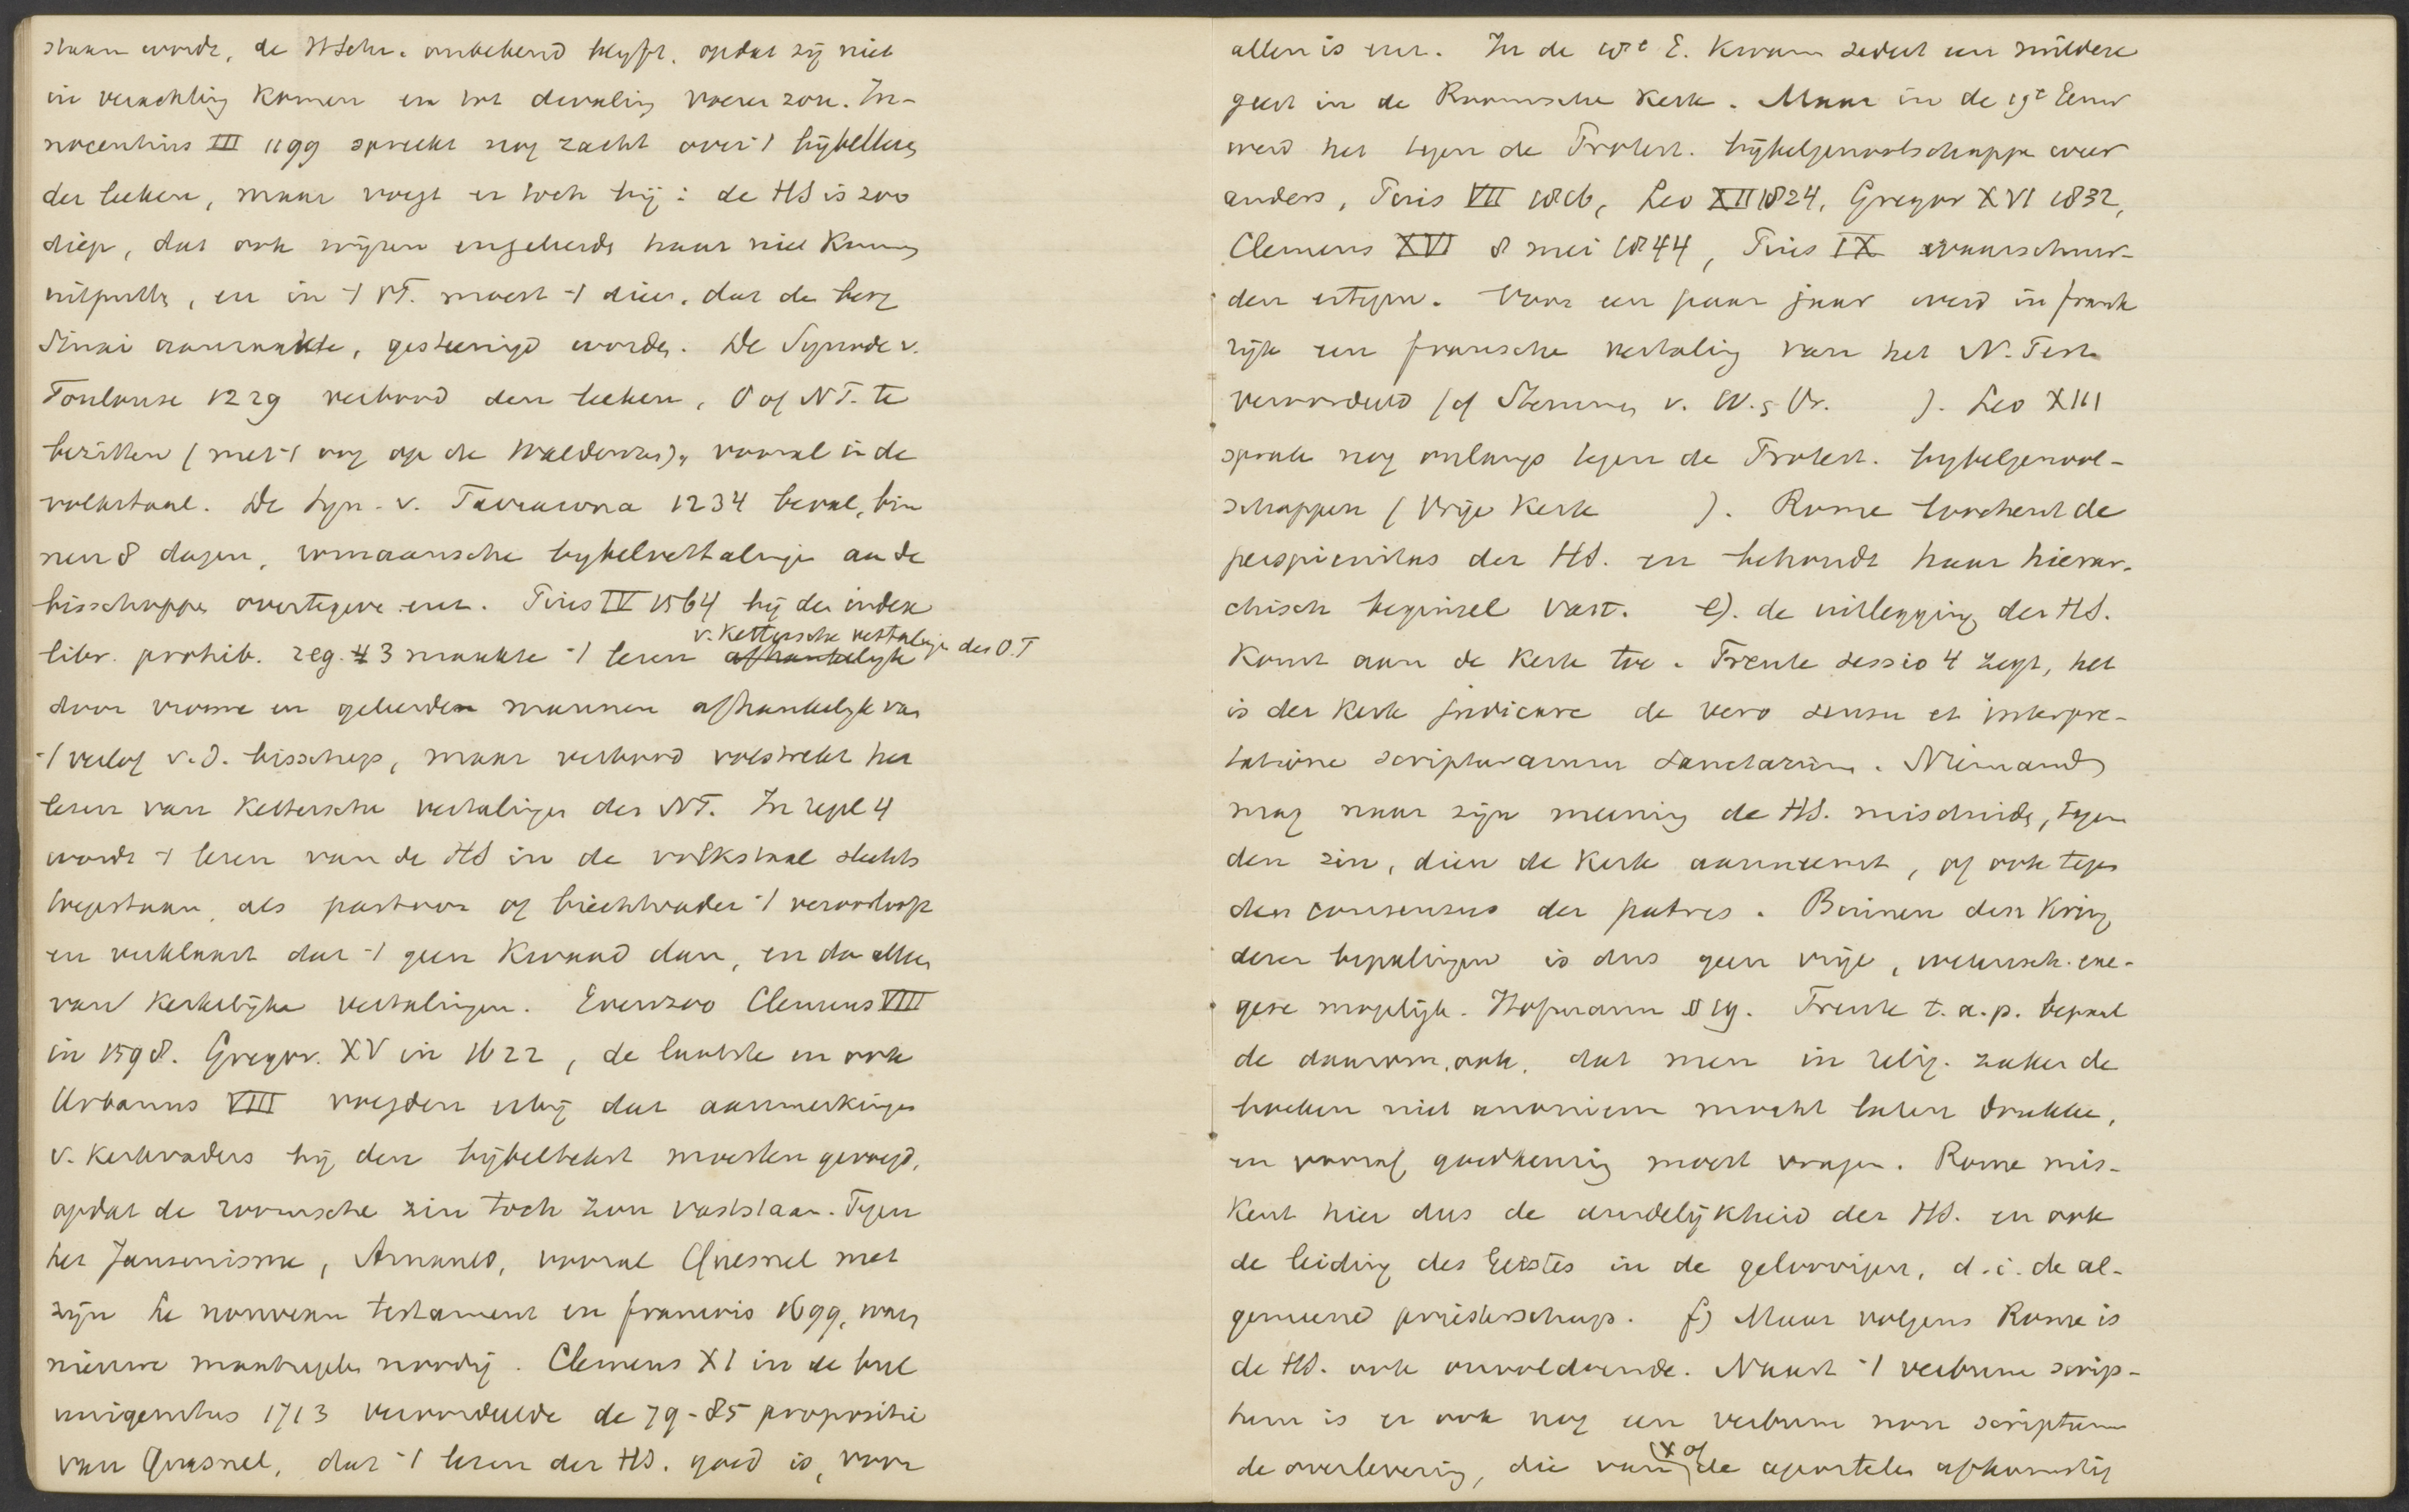 staan wordt, de H Schr. onbekend blyft, opdat zij niet
in verachting komen en tot dwaling voeren zou. In-
nocentius III 1199 spreekt nog zacht over 't bijbellezen
der leeken, maar voegt er toch bij: de HS is zoo
diep, dat ook wijzen en geleerde haar niet kunnen
uitputten, en in 't OT. moest 't dier, dat de berg
Sinai aanraakte, gesteenigd worden. De Synode v.
Toulouse 1229 verbood den leeken, O of NT. te
bezitten (met 't oog op de Waldenzen), vooral in de
volkstaal. De Syn. v. Tarracona 1234 beval, bin
nen 8 dagen, romaansche bybelvertalingen aan de
bisschoppen overtegeven enz. Pius IV 1564 bij den index
v. kettersche vertalingen des O.T
libr. prohib. reg. 3 maakte 't lezen afhankelijk
door vrome en geleerden mannen afhankelyk van
't verlof v.d. bisschop, maar verbood volstrekt het
lezen van kettersche vertalingen des NT. In regel 4
wordt 't lezen van de HS in de volkstaal slechts
toegestaan, als pastoor of biechtvader 't veroorlooft
en verklaart dat 't geen kwaad doet, en dan alleen
van kerkelijke vertalingen. Evenzoo Clemens VIII
in 1598. Gregor. XV in 1622, de laatste en ook
Urbanus VIII voegden erbij dat aanmerkingen
v. Kerkvaders bij den bijbeltekst moesten gevoegd,
opdat de roomsche zin toch zou vaststaan. Tegen
het Jansenisme, Arnauld, vooral Quesnel met
zijn le nouveau testament en francois 1699, waren
nieuwe maatregelen noodig. Clemens XI in de bul
unigenitus 1713 veroordeelde de 79-85 propositie
van Quesnel, dat 't lezen der HS. goed is, voor
allen is enz. In de 18e E. kwam sedert een mildere
geest in de Roomsche Kerk. Maar in de 19e Eeuw
werd het tegen de Protest. bijbelgenootschappen weer
anders, Pius VII 1816, Leo XII 1824, Gregor XVI 1832,
Clemens XVI 8 mei 1844, Pius IX waarschuw-
den ertegen. Voor een paar jaar werd in frank
rijk een fransche vertaling van het N. Test
veroordeeld (cf Stemmen v. W. & Vr. ). Leo XIII
sprak nog onlangs tegen de Protest. bybelgenoot-
schappen (Vrije Kerk ). Rome loochent de
perspicuitas der HS. en behoudt haar hierar-
chisch beginsel vast. e). de uitlegging der HS.
komt aan de Kerk toe. Trente sessio 4 zegt, het
is der Kerk judicare de vero sensu et interpre-
tatione scripturarum sanctarum. Niemand
mag naar zijn meening de HS. misduiden, tegen
den zin, dien de Kerk aanneemt, of ook tegen
den consensus der patres. Binnen den Kring
dezer bepalingen is dus geen vrije, wetensch. exe-
gese mogelijk. Hofmann § 19. Trente t.a.p. bepaal
de daarom ook, dat men in relig. zaken de
boeken niet anoniem mocht laten drukken,
en vooraf goedkeuring moest vragen. Rome mis-
kent hier dus de duidelijkheid der HS. en ook
de leiding des Geestes in de geloovigen, d.i. de al-
gemeene priesterschap. f) Maar volgens Rome is
de HS. ook onvoldoende. Naast 't verbum scrip-
tum is er ook nog een verbum non scriptum
de overlevering, die van (X of) de apostelen afkomstig